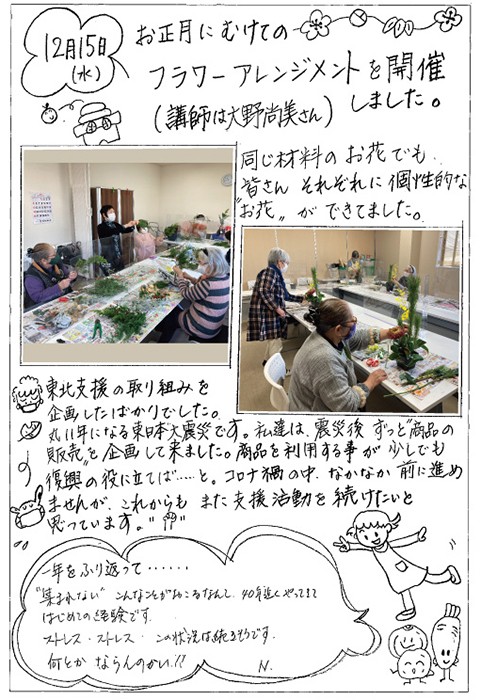 12月15日
(水)
お正月にむけての
フラワーアレンジメントを開催
しました。
(講師は大野尚美さん)
同じ材料のお花でも、
皆さん それぞれに個性的な
"お花"ができてました。
東北支援の取り組みを
企画したばかりでした。
丸11年になる東日本大震災です。私達は、震災後 ずっと"商品の
販売"を企画して来ました。商品を利用する事が 少しでも
復興の役に立てば……と。コロナ禍の中、なかなか前に進め
ませんが、これからも また支援活動を続けたいと
思っています。
一年をふり返って・・・・・・
"集まれない"こんなことがおこるなんて、40年近くやってきて
はじめての経験です。
ストレス・ストレス・この状況は続きそうです。
何とか ならんのかい!! N.